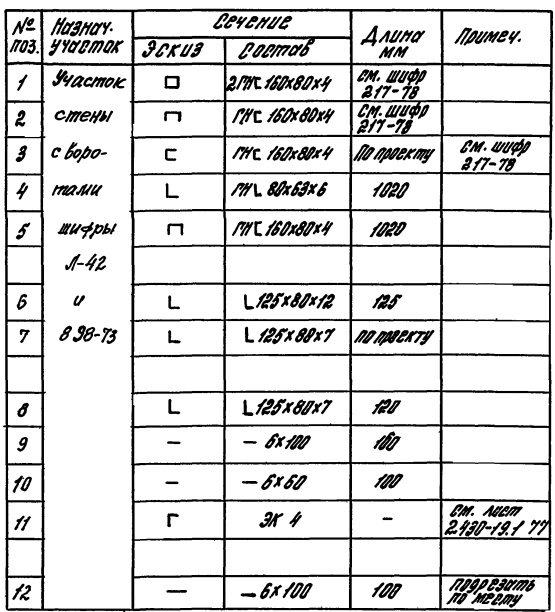 № поз. Назнач. участок Сечение Длина мм Примеч.
Эскиз Состав
1 Участок 2ГНС 160х80х4 См. шифр 217-78
2 стены ГНС 160х80х4 См. шифр 217-78
3 с воро- ГНС 160х80х4 По проекту См. шифр 217-78
4 тами ГНL 80х63х6 1020
5 шифры ГНС 160х80х4 1020
Л-42
6 и L125х80х12 125
7 В 98-73 L125х80х7 по проекту
8 L125х80х7 120
9 – 6х100 160
10 – 6х60 100
11 ЭК 4 – См. лист 2.430-19.1 77
12 – 6х100 100 подрезать по месту